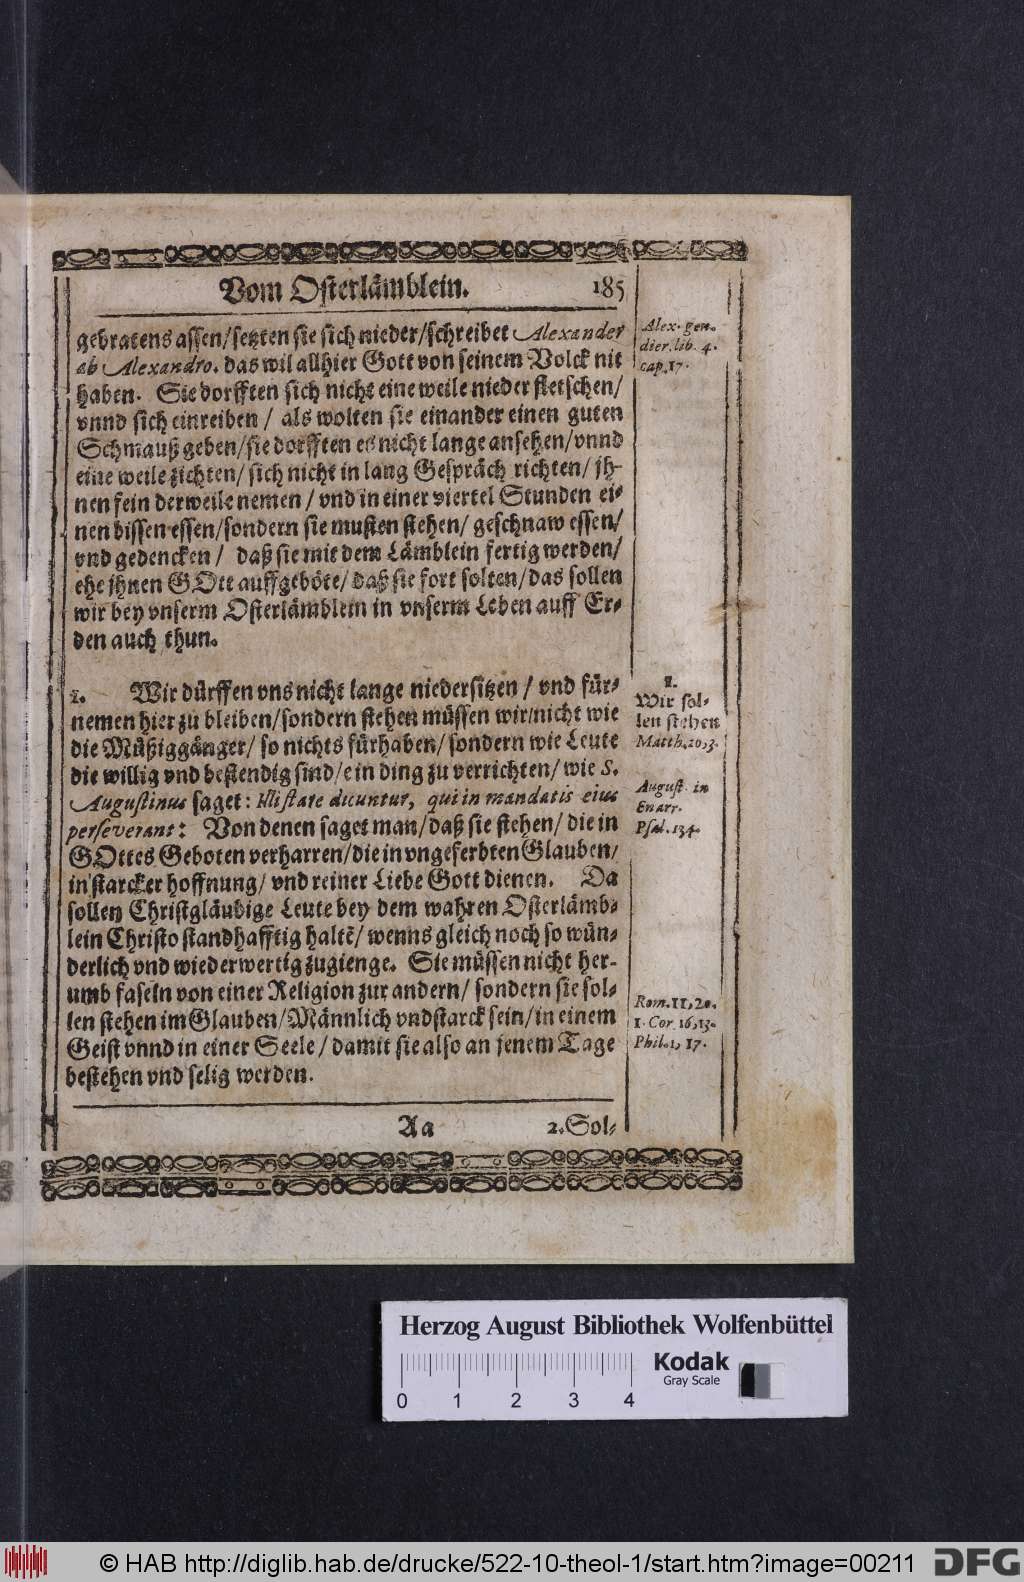 Vom Osterlämblein. 185
gebratens assen/setzten sie sich nieder/schreibet Alexander
ab Alexandro. das wil allhier Gott von seinem Volck nit
haben. Sie dorfften sich nicht eine weile nieder fletschen/
vnnd sich einreiben / als wolten sie einander einen guten
Schmauß geben/sie dorfften es nicht lange ansehen/vnnd
eine weile zichten/ sich nicht in lang Gespräch richten/ jh-
nen fein derweile nemen / vnd in einer viertel Stunden ei-
nen bissen essen/sondern sie musten stehen/ geschnaw essen/
vnd gedencken / daß sie mit dem Lämblein fertig werden/
ehe jhnen GOtt auffgeböte/ daß sie fort solten/das sollen
wir bey vnserm Osterlämblein in vnserm Leben auff Er-
den auch thun.
Alex. gen.
dier. lib. 4.
cap. 17.
1. Wir dürffen vns nicht lange niedersitzen / vnd für-
nemen hier zu bleiben/sondern stehen müssen wir/nicht wie
die Müßiggänger/ so nichts fürhaben/sondern wie Leute
die willig vnd bestendig sind/ein ding zu verrichten/wie S.
Augustinus saget: Illi stare dicuntur, qui in mandatis eius
perseverant: Von denen saget man/daß sie stehen/ die in
GOttes Geboten verharren/die in vngeferbten Glauben/
in starcker hoffnung/ vnd reiner Liebe Gott dienen. Da
sollen Christgläubige Leute bey dem wahren Osterlämb-
lein Christo standhafftig haltē/ wenns gleich noch so wün-
derlich vnd wiederwertig zugienge. Sie müssen nicht her-
umb faseln von einer Religion zur andern/ sondern sie sol-
len stehen im Glauben/Männlich vnd starck sein/in einem
Geist vnnd in einer Seele / damit sie also an jenem Tage
bestehen vnd selig werden.
1.
Wir sol-
len stehen
Matth. 20,3.
August. in
Enarr.
Psal. 134.
Rom. 11, 20.
1. Cor. 16, 13.
Phil. 1, 17.
Aa 2. Sol-
Herzog August Bibliothek Wolfenbüttel
0 1 2 3 4
Kodak
Gray Scale
© HAB http://diglib.hab.de/drucke/522-10-theol-1/start.htm?image=00211
DFG